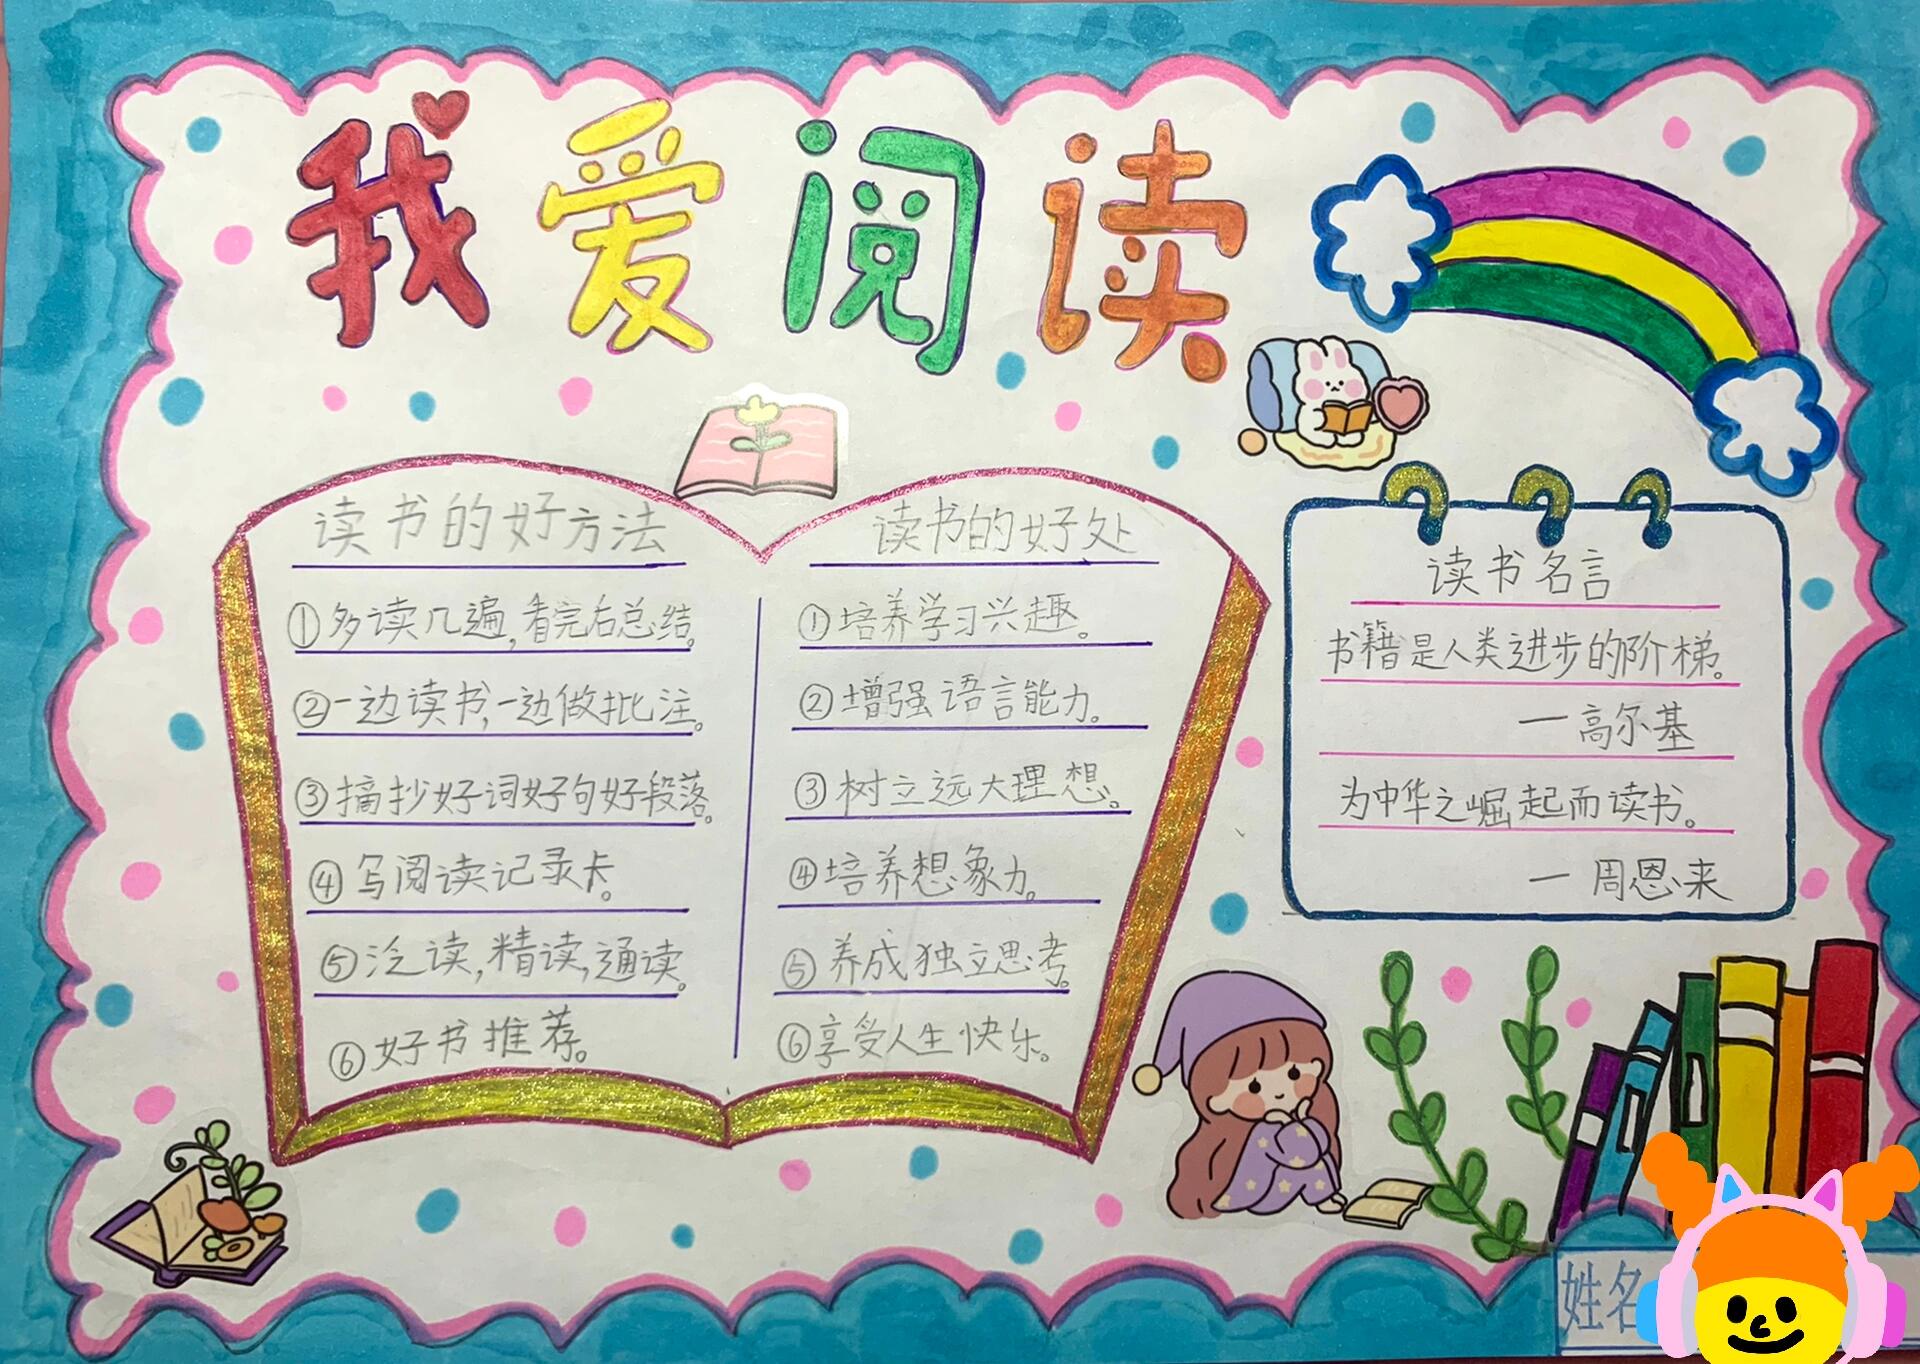 我爱阅读
读书的好方法
①多读几遍,看完后总结。
②一边读书,一边做批注。
③摘抄好词好句好段落。
④写阅读记录卡。
⑤泛读,精读,通读。
⑥好书推荐。
读书的好处
①培养学习兴趣。
②增强语言能力。
③树立远大理想。
④培养想象力。
⑤养成独立思考。
⑥享受人生快乐。
读书名言
书籍是人类进步的阶梯。
一高尔基
为中华之崛起而读书。
一周恩来
姓名